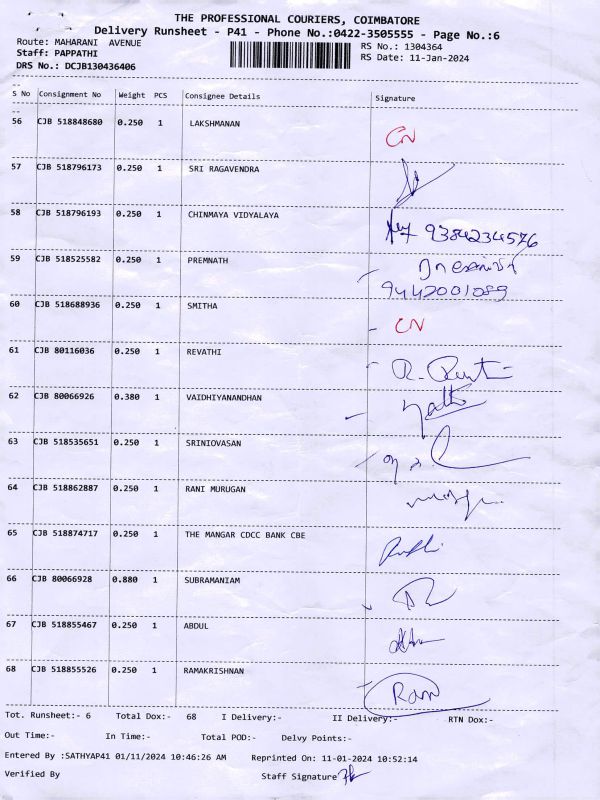 THE PROFESSIONAL COURIERS, COIMBATORE
Delivery Runsheet - P41 - Phone No.:0422-3505555 - Page No.:6
Route: MAHARANI AVENUE RS No.: 1304364
Staff: PAPPATHI RS Date: 11-Jan-2024
DRS No.: DCJB130436406
S No Consignment No Weight PCS Consignee Details Signature
56 CJB 518848680 0.250 1 LAKSHMANAN CN
57 CJB 518796173 0.250 1 SRI RAGAVENDRA
58 CJB 518796193 0.250 1 CHINMAYA VIDYALAYA 9384234576
59 CJB 518525582 0.250 1 PREMNATH
9442001089
60 CJB 518688936 0.250 1 SMITHA CN
61 CJB 80116036 0.250 1 REVATHI
62 CJB 80066926 0.380 1 VAIDHIYANANDHAN
63 CJB 518535651 0.250 1 SRINIOVASAN
64 CJB 518862887 0.250 1 RANI MURUGAN
65 CJB 518874717 0.250 1 THE MANGAR CDCC BANK CBE
66 CJB 80066928 0.880 1 SUBRAMANIAM
67 CJB 518855467 0.250 1 ABDUL
68 CJB 518855526 0.250 1 RAMAKRISHNAN Ram
Tot. Runsheet:- 6 Total Dox:- 68 I Delivery:- II Delivery:- RTN Dox:-
Out Time:- In Time:- Total POD:- Delvy Points:-
Entered By :SATHYAP41 01/11/2024 10:46:26 AM Reprinted On: 11-01-2024 10:52:14
Verified By Staff Signature